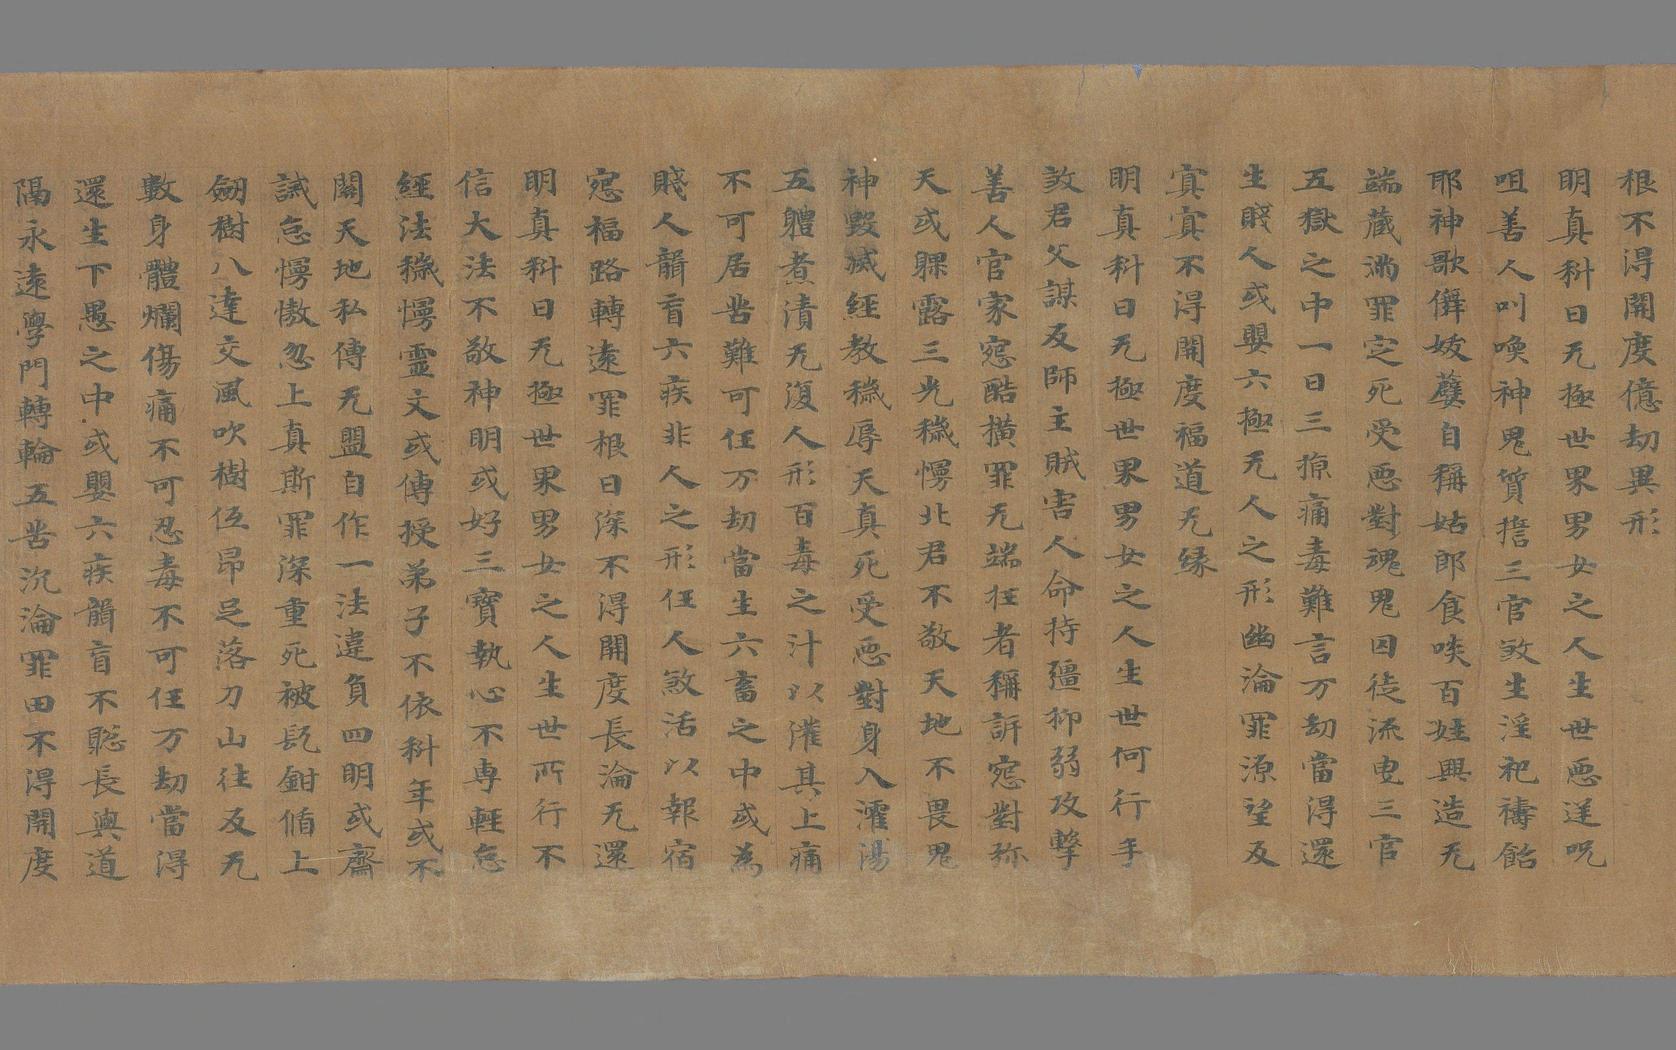 根不得開度億劫異形
明真科曰无極世界男女之人生世惡逆呪
咀善人叫喚神鬼質擔三官煞生淫祀禱飴
耶神歌儛妭孽自稱姑郎食啖百姓興造无
端藏滿罪定死受惡對魂鬼囚徒流曳三官
五獄之中一日三掠痛毒難言万劫當得還
生賤人或嬰六極无人之形幽淪罪源望反
寘寘不得開度福道无緣
明真科曰无極世界男女之人生世何行手
煞君父謀反師主賊害人命持彊抑弱攻擊
善人官家寃酷横罪无端抂者稱訴寃對弥
天或躶露三光穢慢北君不敬天地不畏鬼
神毀滅經教穢辱天真死受惡對身入濩湯
五軆煮漬无復人形百毒之汁以灌其上痛
不可居苦難可任万劫當生六畜之中或為
賤人聾盲六疾非人之形任人煞活以報宿
寃福路轉遠罪根日深不得開度長淪无還
明真科曰无極世界男女之人生世所行不
信大法不敬神明或好三寶執心不專輕怠
經法穢慢靈文或傳授弟子不依科年或不
關天地私傳无盟自作一法違負四明或齋
誡怠慢慠忽上真斯罪深重死被髡鉗循上
劒樹八達交風吹樹伍昂足落刀山往反无
數身體爛傷痛不可忍毒不可任万劫當得
還生下愚之中或嬰六疾聾盲不聦長與道
隔永遠學門轉輪五苦沉淪罪田不得開度